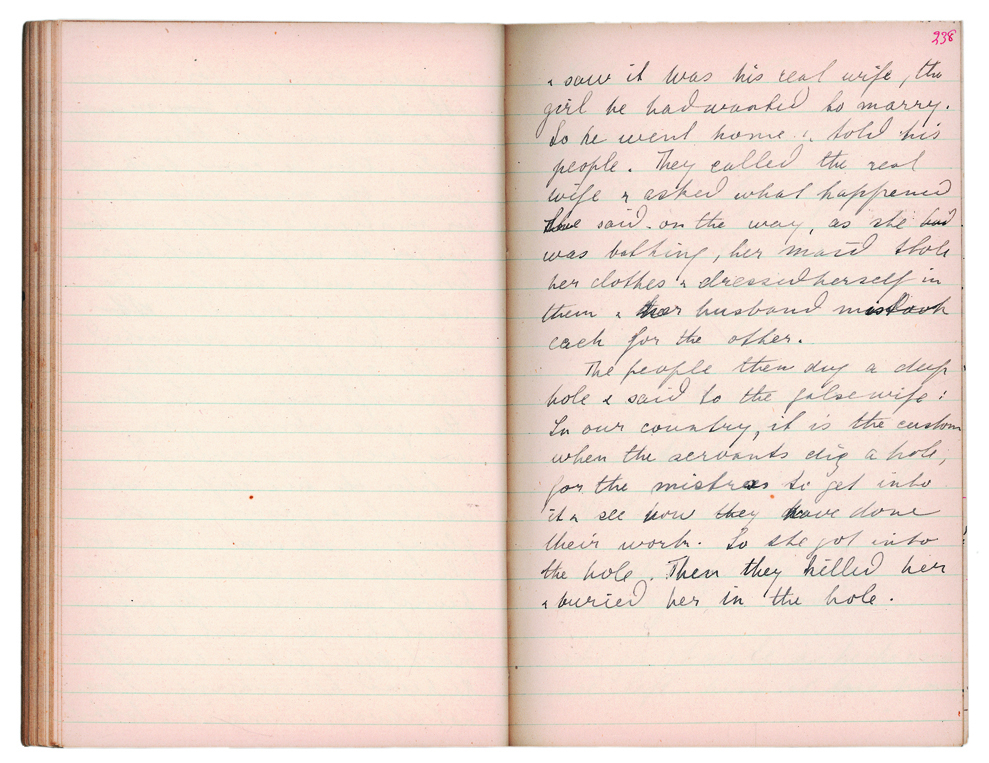 238
& saw it was his real wife, the
girl he had wanted to marry.
So he went home & told his
people. They called the real
wife & asked what happened
She said on the way, as she had
was bathing, her maid stole
her clothes & dressed herself in
them & her husband mistook
each for the other.
The people then dug a deep
hole & said to the false wife:
In our country, it is the custom
when the servants dig a hole,
for the mistress to get into
it & see how they have done
their work. So she got into
the hole. Then they killed her
& buried her in the hole.